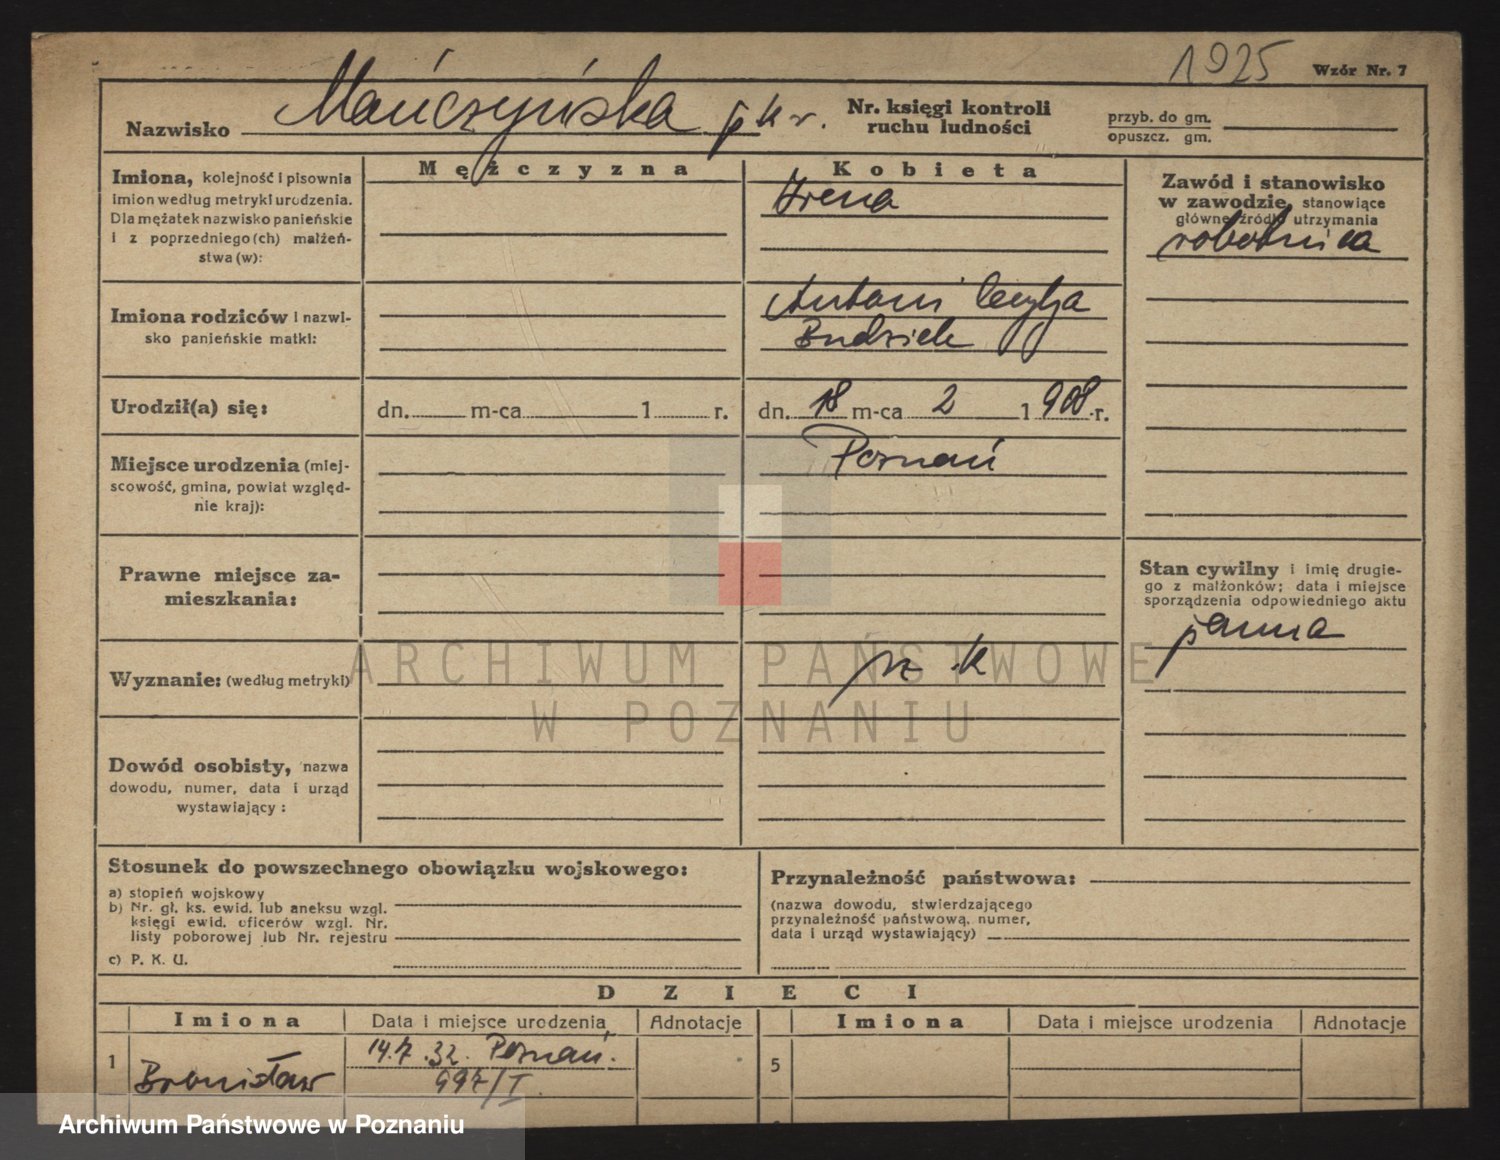 1925
Wzór Nr. 7
Nazwisko Mańczyńska
Nr. księgi kontroli
ruchu ludności
przyb. do gm.
opuszcz. gm.
Mężczyzna
Kobieta
Imiona, kolejność i pisownia
imion według metryki urodzenia.
Dla mężatek nazwisko panieńskie
i z poprzedniego(ch) małżeń-
stwa(w):
Irena
Zawód i stanowisko
w zawodzie, stanowiące
główne źródło utrzymania
robotnica
Imiona rodziców i nazwi-
sko panieńskie matki:
Antoni Cecylja
Budziek
Urodził(a) się:
dn. m-ca 1 r.
dn. 18 m-ca 2 1908 r.
Miejsce urodzenia (miej-
scowość, gmina, powiat względ-
nie kraj):
Poznań
Prawne miejsce za-
mieszkania:
Stan cywilny i imię drugie-
go z małżonków; data i miejsce
sporządzenia odpowiedniego aktu
panna
Wyznanie: (według metryki)
rz. k
ARCHIWUM PAŃSTWOWE
W POZNANIU
Dowód osobisty, nazwa
dowodu, numer, data i urząd
wystawiający:
Stosunek do powszechnego obowiązku wojskowego:
a) stopień wojskowy
b) Nr. gł. ks. ewid. lub aneksu wzgl.
księgi ewid. oficerów wzgl. Nr.
listy poborowej lub Nr. rejestru
c) P. K. U.
Przynależność państwowa:
(nazwa dowodu, stwierdzającego
przynależność państwową, numer,
data i urząd wystawiający)
DZIECI
Imiona Data i miejsce urodzenia Adnotacje Imiona Data i miejsce urodzenia Adnotacje
1 Bronisław 14.7.32. Poznań.
997/I
5
Archiwum Państwowe w Poznaniu